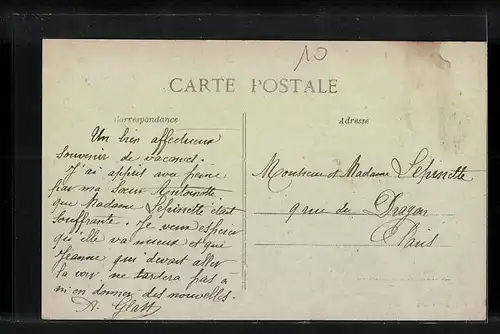 10
CARTE POSTALE
Correspondance
Adresse
Un bien affectueux
souvenir de vacances.
J'ai appris avec peine
par ma Sœur Antoinette
que Madame Lepinette était
souffrante. Je veux espérer
qu'elle va mieux et que
Jeanne qui devait aller
la voir ne tardera pas à
m'en donner des nouvelles.
A. Glatt
Monsieur et Madame Lepinette
9 rue du Dragon
Paris